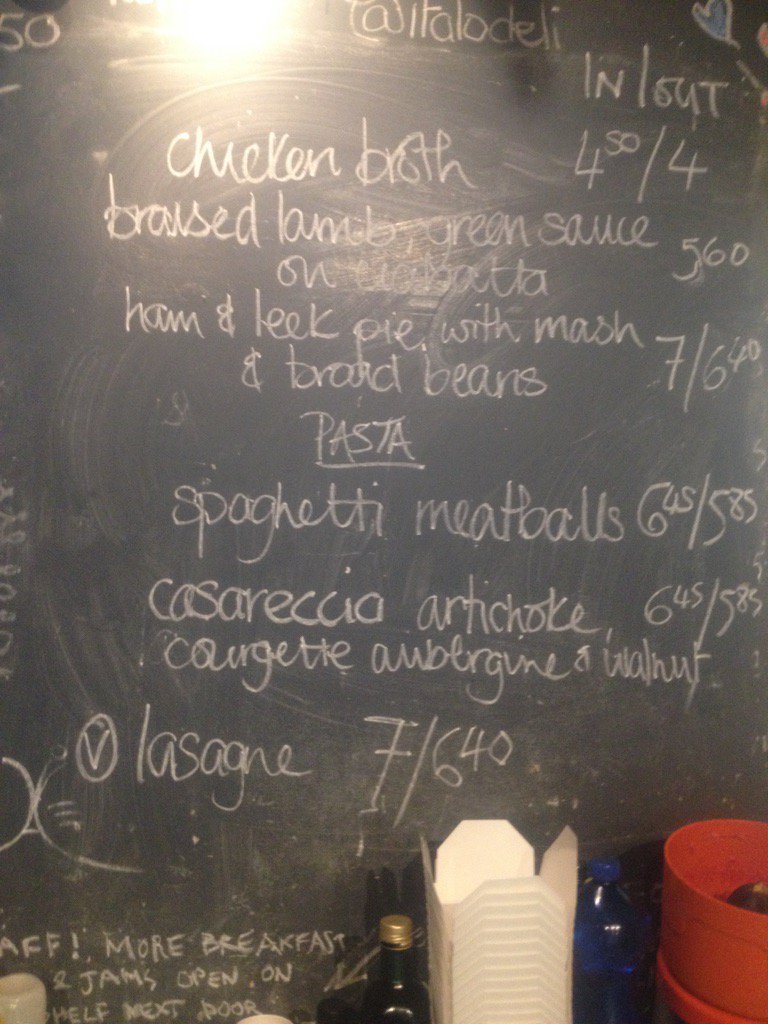 50
@italodeli
IN/OUT
chicken broth 4 50/4
braised lamb, green sauce
on ciabatta 5 60
ham & leek pie, with mash
& broad beans 7/6 40
PASTA
spaghetti meatballs 6 45/5 85
casareccia artichoke, 6 45/5 85
courgette aubergine & walnut
V lasagne 7/6 40
AFF! MORE BREAKFAST
2 JAMS OPEN ON
HELF NEXT DOOR